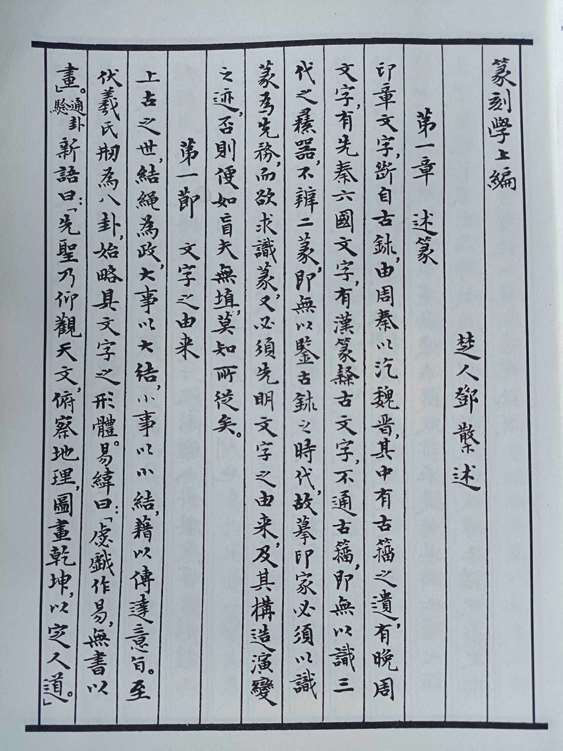 篆刻學上編
楚人鄧散木述
第一章　述篆
印章文字，斷自古鉨，由周秦以汔魏晋，其中有古籀之遺，有晚周
文字，有先秦六國文字，有漢篆繇古文字，不通古籀，即無以識三
代之彝器，不辨二篆，即無以鑒古鉨之時代，故摹印家必須以識
篆為先務，而欲求識篆，又必須先明文字之由来，及其構造演變
之迹，否則便如盲夫無埴，莫知所從矣。
第一節　文字之由来
上古之世，結繩為政，大事以大結，小事以小結，藉以傳達意旨。至
伏羲氏剏為八卦，始略具文字之形體。易緯曰：「虙戲作易，無書以
畫。」通卦驗新語曰：「先聖乃仰觀天文，俯察地理，圖畫乾坤，以定人道。」